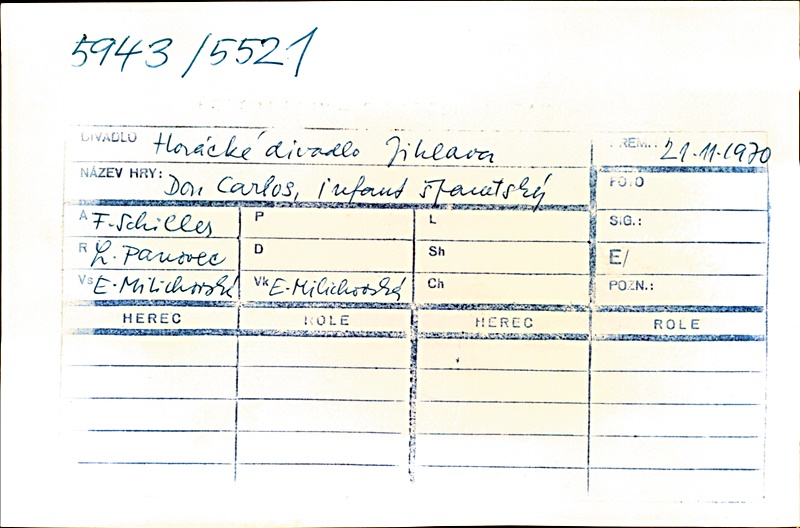 5943/5521
DIVADLO Horácké divadlo Jihlava PREM.: 21.11.1970
NÁZEV HRY: Don Carlos, infant španělský FOTO
A F. Schiller P L SIG.:
R L. Panovec D Sh E/
Vs E. Milichovská Vk E. Milichovská Ch POZN.:
HEREC ROLE HEREC ROLE